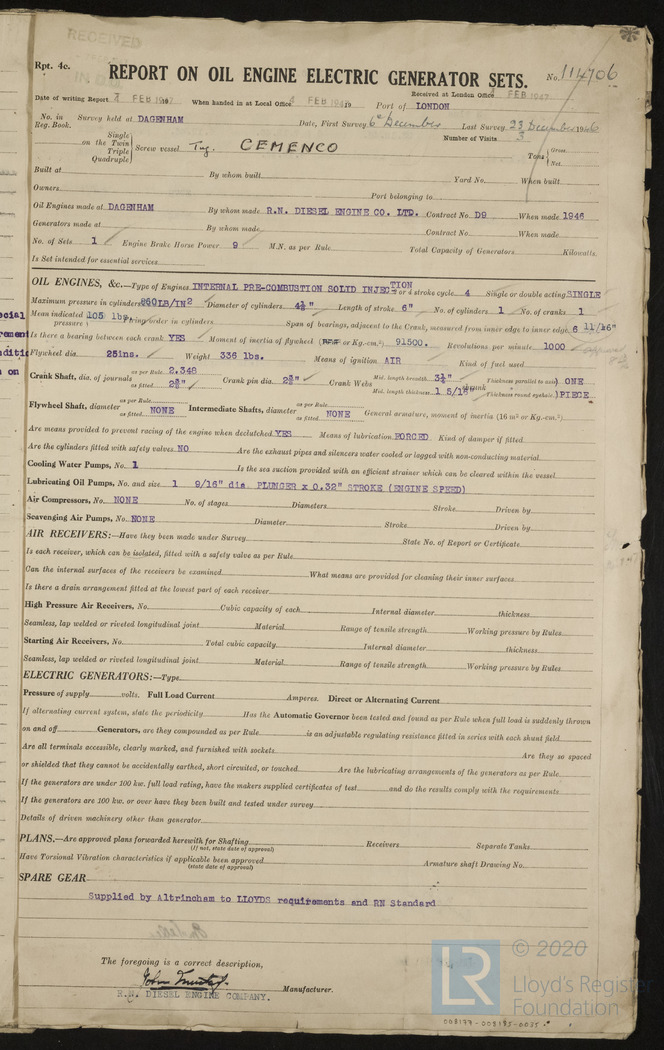 RECEIVED
Rpt. 4c.
REPORT ON OIL ENGINE ELECTRIC GENERATOR SETS.
No. 114706
Date of writing Report 7 FEB 1947 When handed in at Local Office FEB 19 Received at London Office FEB 1947
Port of LONDON
No. in Reg. Book. Survey held at DAGENHAM Date, First Survey 6th December Last Survey 23 December 1946
Number of Visits 3
on the Single Twin Triple Quadruple } Screw vessel Tug. CEMENCO Tons { Gross Net
Built at By whom built Yard No. When built
Owners Port belonging to
Oil Engines made at DAGENHAM By whom made R.N. DIESEL ENGINE CO. LTD. Contract No. D9 When made 1946
Generators made at By whom made Contract No. When made
No. of Sets 1 Engine Brake Horse Power 9 M.N. as per Rule Total Capacity of Generators Kilowatts.
Is Set intended for essential services
OIL ENGINES, &c.—Type of Engines INTERNAL PRE-COMBUSTION SOLID INJECTION or 4 stroke cycle 4 Single or double acting SINGLE
Maximum pressure in cylinders 860 LB/IN2 Diameter of cylinders 4½" Length of stroke 6" No. of cylinders 1 No. of cranks 1
Mean indicated pressure 105 lbs. Firing order in cylinders Span of bearings, adjacent to the Crank, measured from inner edge to inner edge 6 11/16"
Is there a bearing between each crank YES Moment of inertia of flywheel ( or Kg.-cm.²) 91500. Revolutions per minute 1000
Flywheel dia. 25ins. Weight 336 lbs. Means of ignition AIR Kind of fuel used
Crank Shaft, dia. of journals as per Rule 2.348 as fitted Crank pin dia. Crank Webs Mid. length breadth 3¼" Mid. length thickness 1 5/16" shrunk Thickness parallel to axis Thickness round eyehole ) ONE )PIECE
Flywheel Shaft, diameter as per Rule as fitted NONE Intermediate Shafts, diameter as per Rule as fitted NONE General armature, moment of inertia (16 in² or Kg.-cm.²)
Are means provided to prevent racing of the engine when declutched YES Means of lubrication FORCED Kind of damper if fitted
Are the cylinders fitted with safety valves NO Are the exhaust pipes and silencers water cooled or lagged with non-conducting material
Cooling Water Pumps, No. 1 Is the sea suction provided with an efficient strainer which can be cleared within the vessel
Lubricating Oil Pumps, No. and size 1 9/16" dia PLUNGER x 0.32" STROKE (ENGINE SPEED)
Air Compressors, No. NONE No. of stages Diameters Stroke Driven by
Scavenging Air Pumps, No. NONE Diameter Stroke Driven by
AIR RECEIVERS:—Have they been made under Survey State No. of Report or Certificate
Is each receiver, which can be isolated, fitted with a safety valve as per Rule
Can the internal surfaces of the receivers be examined What means are provided for cleaning their inner surfaces
Is there a drain arrangement fitted at the lowest part of each receiver
High Pressure Air Receivers, No. Cubic capacity of each Internal diameter thickness
Seamless, lap welded or riveted longitudinal joint Material Range of tensile strength Working pressure by Rules
Starting Air Receivers, No. Total cubic capacity Internal diameter thickness
Seamless, lap welded or riveted longitudinal joint Material Range of tensile strength Working pressure by Rules
ELECTRIC GENERATORS:—Type
Pressure of supply volts. Full Load Current Amperes. Direct or Alternating Current
If alternating current system, state the periodicity Has the Automatic Governor been tested and found as per Rule when full load is suddenly thrown
on and off Generators, are they compounded as per Rule is an adjustable regulating resistance fitted in series with each shunt field
Are all terminals accessible, clearly marked, and furnished with sockets Are they so spaced
or shielded that they cannot be accidentally earthed, short circuited, or touched Are the lubricating arrangements of the generators as per Rule
If the generators are under 100 kw. full load rating, have the makers supplied certificates of test and do the results comply with the requirements
If the generators are 100 kw. or over have they been built and tested under survey
Details of driven machinery other than generator
PLANS.—Are approved plans forwarded herewith for Shafting Receivers Separate Tanks
(If not, state date of approval)
Have Torsional Vibration characteristics if applicable been approved Armature shaft Drawing No.
(state date of approval)
SPARE GEAR
Supplied by Altrincham to LLOYDS requirements and RN Standard
The foregoing is a correct description,
R.N. DIESEL ENGINE COMPANY. Manufacturer.
LR © 2020
Lloyd's Register
Foundation
008177-008185-0035